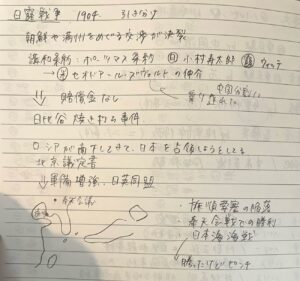 日露戦争 1904
朝鮮や満州をめぐる交渉が決裂
講和条約：ポーツマス条約 日 小村寿太郎 露 ウィッテ
→ 米 セオドア＝ルーズヴェルトの仲介
⇓ 賠償金なし
日比谷焼き打ち事件
ロシアが南下してきて、日本を占領しようとしてる
北京議定書
⇓ 軍備増強、日英同盟
・旅順要塞の陥落
・奉天会戦での勝利
・日本海海戦
勝ったけどピンチ